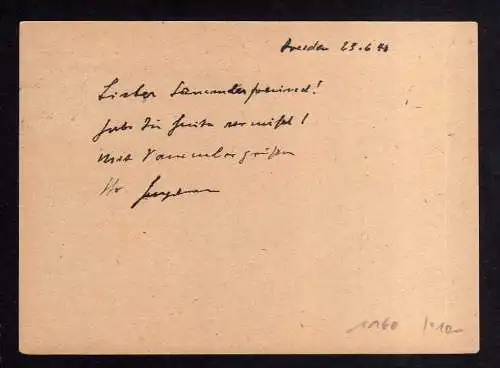 Dresden 25.6.46
Lieber Sammlerfreund!
habe Sie heute vermißt!
Mit Sammlergrüßen
Ihr